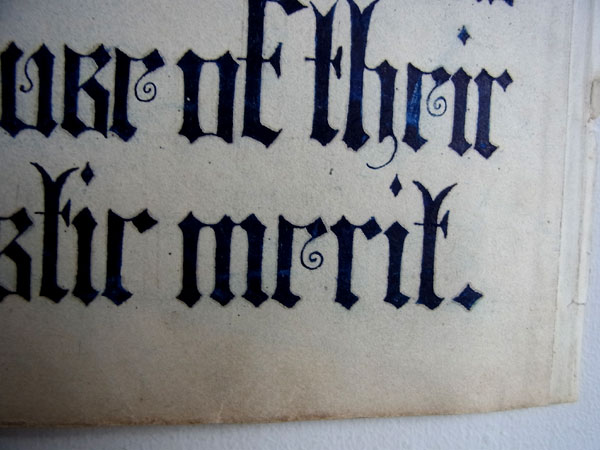 use of their
stic merit.